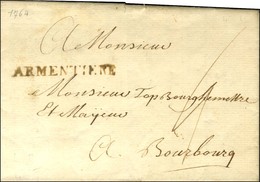 1767
A Monsieur
ARMENTIERE
Monsieur Top Bourghemettre
Et Mayeur
A Bourbourg